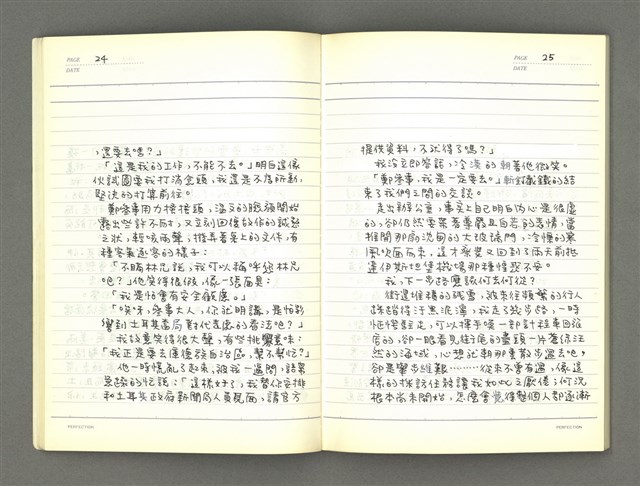 PAGE 24
DATE
，還要去嗎？」
「這是我的工作，不能不去。」明白這傢
伙試圖要我打消念頭，我還是不為所動，
堅決的打算前往。
鄭參事用力搔搔頭，溫文的眼神開始
露出些許不耐，又立刻回復做作的誠懇
之狀，輕咳兩聲，推著著桌上的文件，有
種客氣逐客的樣子：
「不瞞林兄說，我可以稱呼您林兄
吧？」他笑得很假，像一張面具：
「我是怕會有安全顧慮。」
「唉呀，參事大人，你就明講，是怕影
響到土耳其當局對代表處的看法吧？」
我故意笑得很大聲，有些挑釁意味：
「我正是要去庫德族自治區，幫不幫忙？」
他一時慌亂了起來，被我一逼問，話里
急談的忙說：「這樣好了，我替你安排
和土耳其政府新聞局人員見面，請官方
PERFECTION
PAGE 25
DATE
提供資料，不就得了嗎？」
我沒立即答話，冷淡的朝著他微笑。
「鄭參事，我是一定要去。」斬釘截鐵的結
束了我們之間的交談。
走出辦公室，事實上自己明白內心是很虛
的，卻仍然要裝著尊嚴且自若的表情，當
推開那扇沈甸的大玻璃門，冷慄的寒
風吹面而來，這才承受又回到了兩天前抵
達伊斯坦堡機場那種惶惑不安。
我，下一步路應該何去何從？
街邊堆積的殘雪，被來往頻繁的行人
踩踏得汙黑泥濘，我走了幾步路，一時
恍惚駐足，可以揮手喚一部計程車回旅
店的，卻一眼看見街尾的盡頭一片蒼綠汪
然的海域，心想就朝那裏散步過去吧，
卻是舉步維艱………從來不會有過，像這
樣的採訪任務讓我如此之厭倦；何況
根本尚未開始，怎麼會覺得整個人都逐漸
PERFECTION